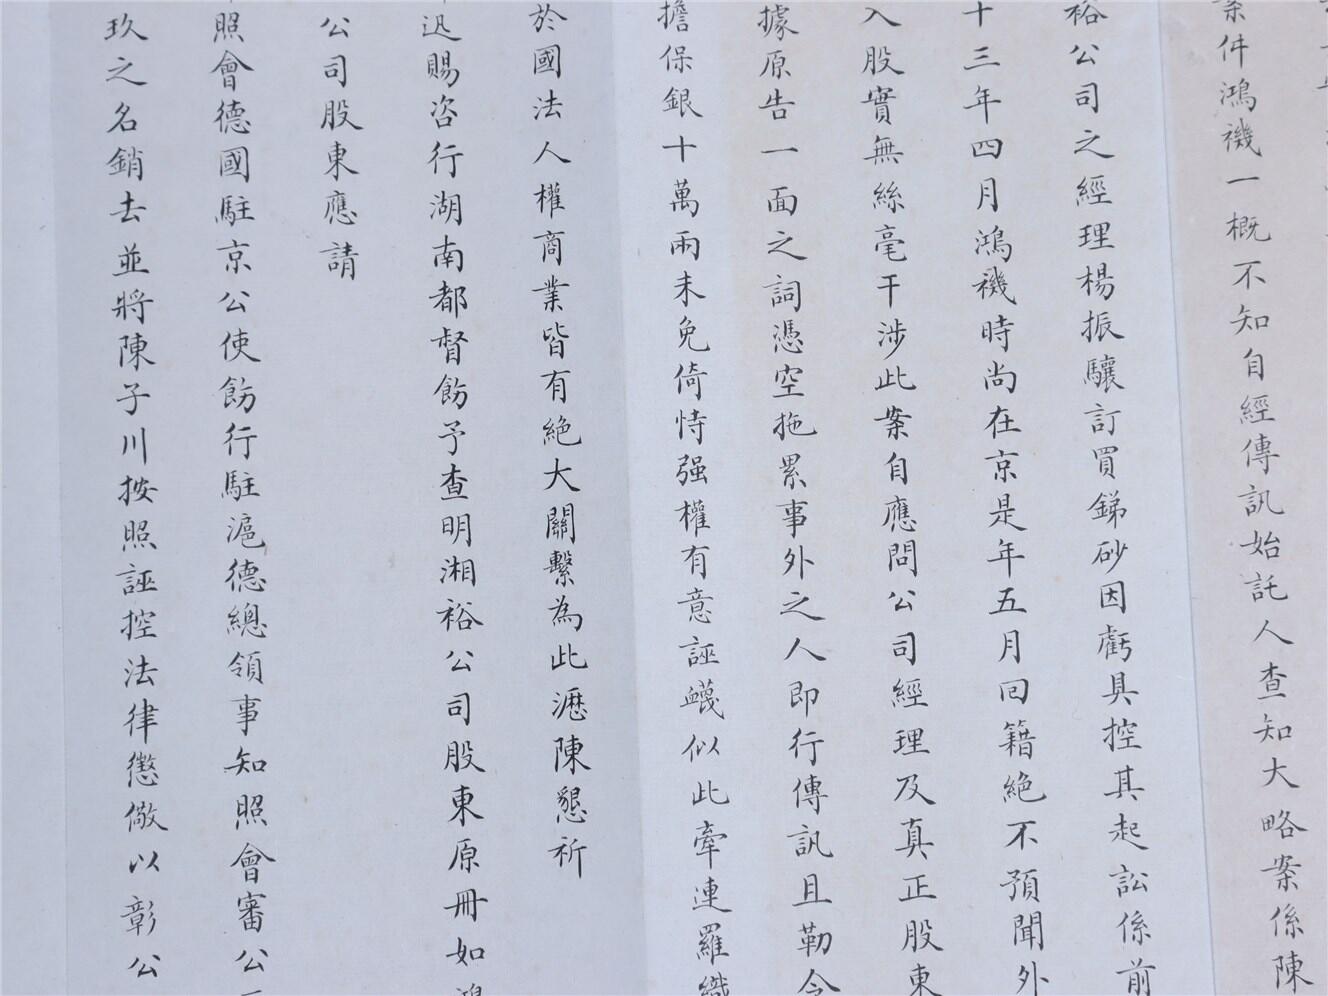 案件鴻禨一概不知自經傳訊始託人查知大略案係陳
裕公司之經理楊振驤訂買銻砂因虧具控其起訟係前
十三年四月鴻禨時尚在京是年五月回籍絶不預聞外
入股實無絲毫干涉此案自應問公司經理及真正股東
據原告一面之詞憑空拖累事外之人即行傳訊且勒令
擔保銀十萬兩未免倚恃强權有意誣衊似此牽連羅織
於國法人權商業皆有絶大關繫為此瀝陳懇祈
迅賜咨行湖南都督飭予查明湘裕公司股東原冊如鴻
公司股東應請
照會德國駐京公使飭行駐滬德總領事知照會審公
玖之名銷去並將陳子川按照誣控法律懲儆以彰公